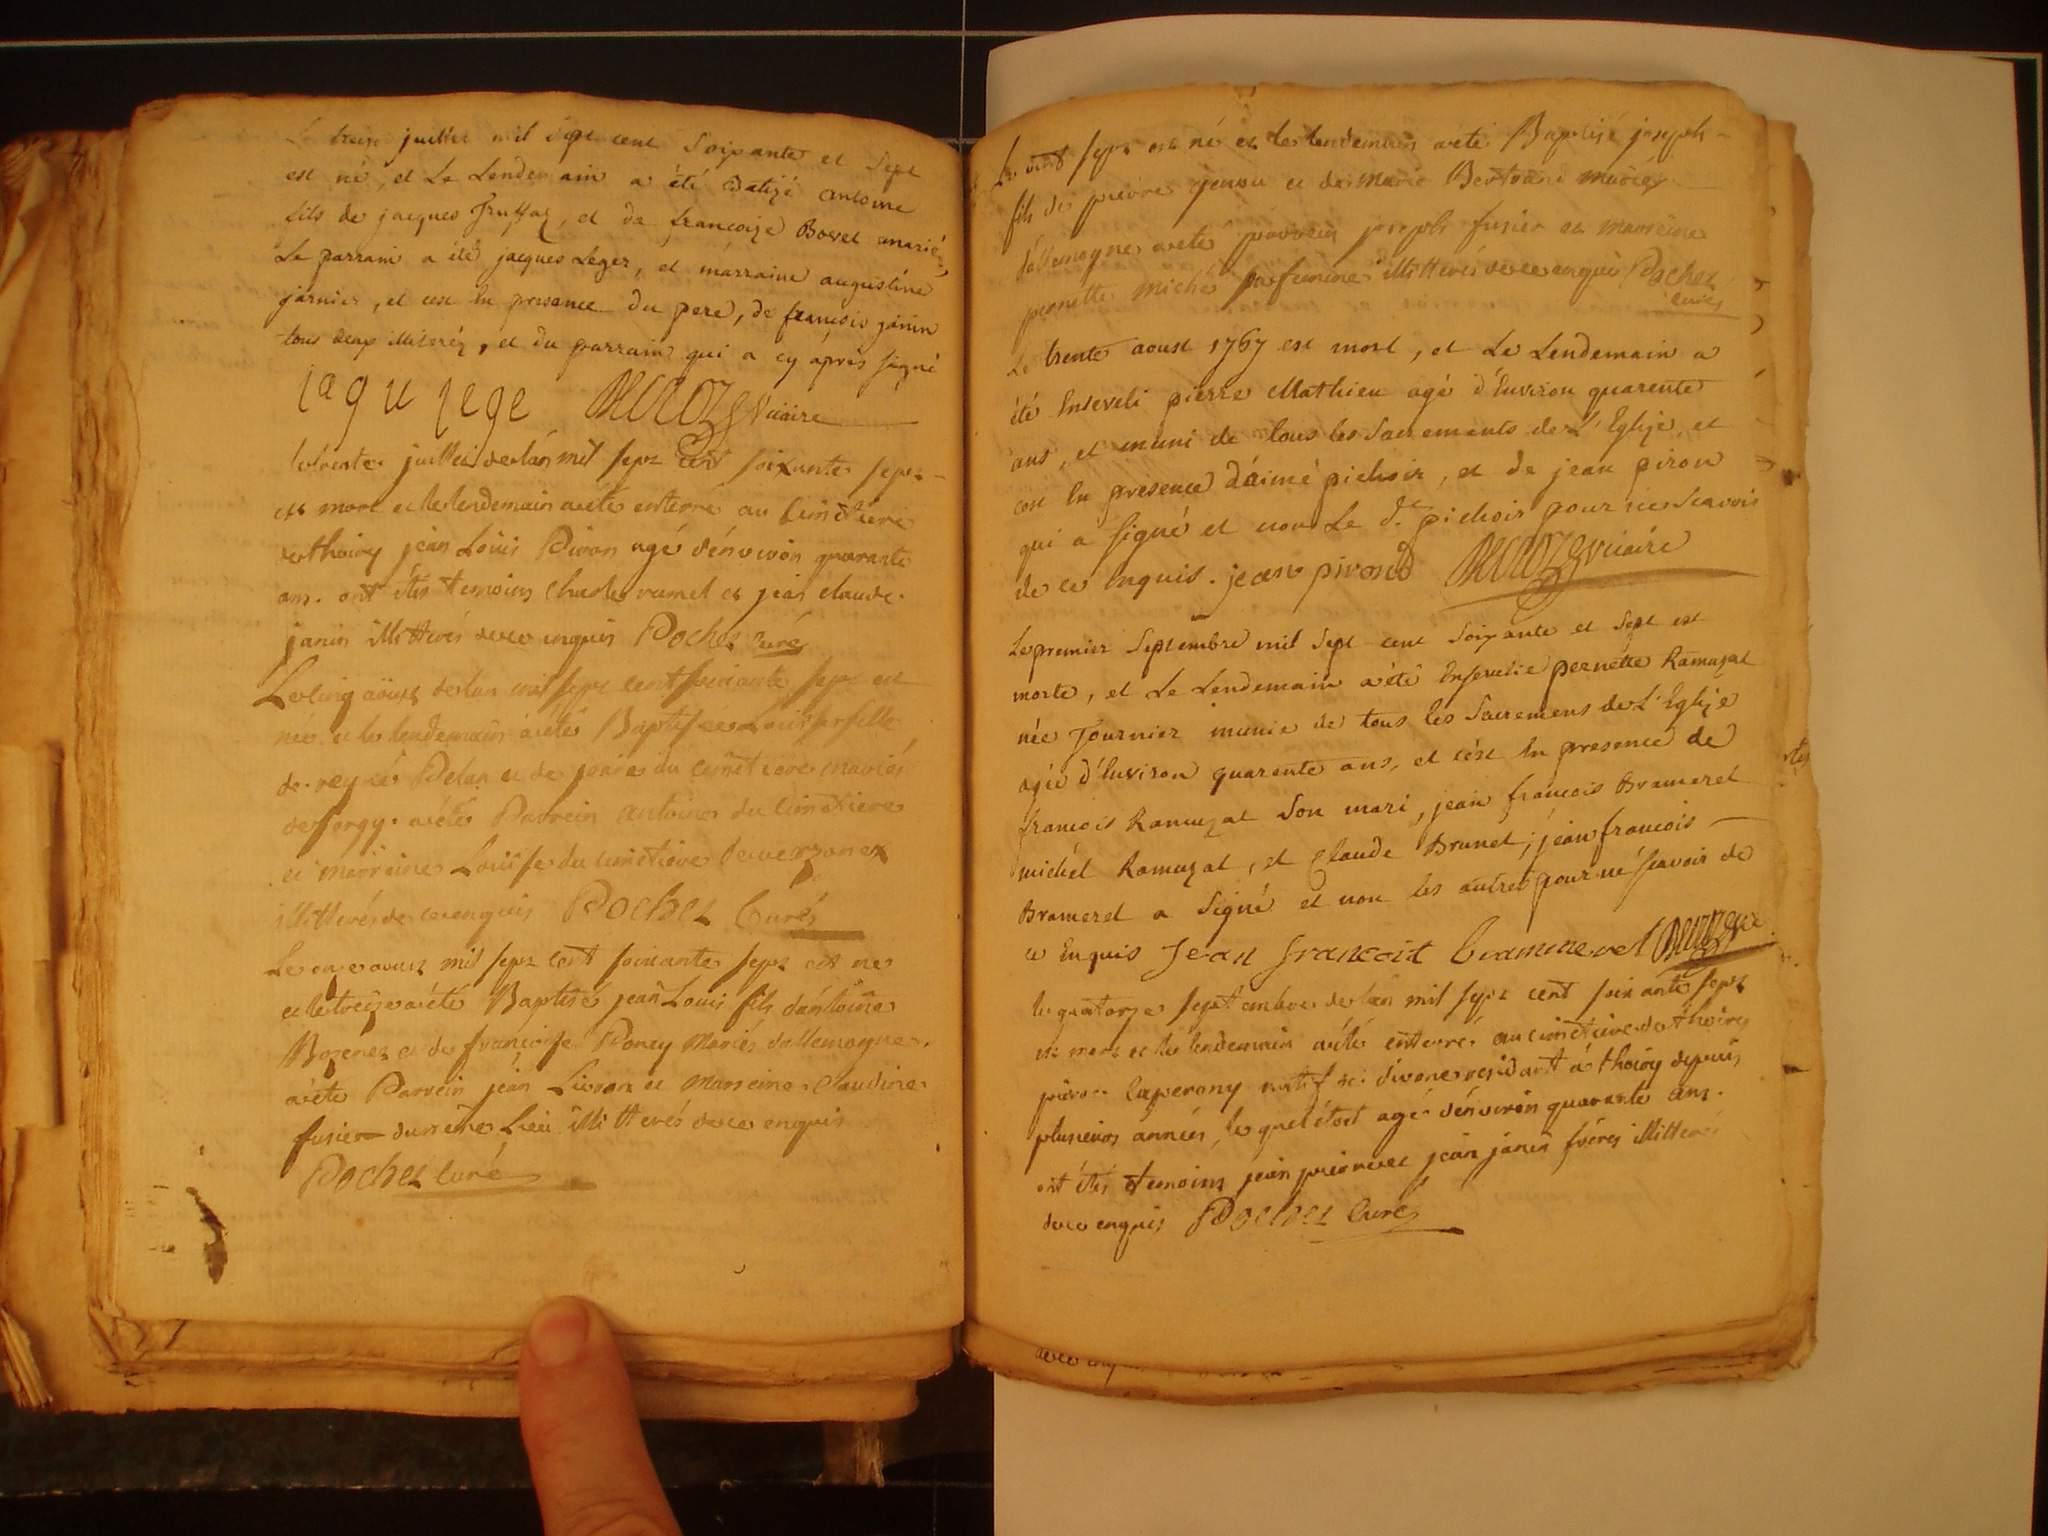 Le treize juillet mil sept cent Soixante et Sept
est né, et Le Lendemain a été Batizé antoine
fils de jacques Truffaz, et de francoize Bovet mariés
Le parrain a été jacques Leger, et marraine augustine
janier, et cest En presence du pere, de francois janin
tous deux illiterés, et du parrain qui a cy aprés signé
jaque jege Decroze vicaire
le trente juillet de lán mil sept cent soixante sept
est mort et le lendemain a été enterré au Cimetiere
de thoiry jean Loüis Piron agé dénviron quarante
ans. ont étés témoins Charles ramel et jean claude
janin illitterés de ce enquis Pochet Curé
Le cinq aöust de lan mil sept cent soixante sept est
née et le lendemain a été Baptisée Louise fille
de Pelaz et de du cimetiere mariés
de sergy. a été Parrein antoine du Cimetiere
et marreine Loüise du cimetiere de verzonex
illitterés de ce enquis Pochet Curé
Le onze aoust mil sept cent soixante sept est né
et le treize a été Baptisé jean Louis fils dántoine
Bozenet et de francoise Poncy Mariés dallemogne.
a été Parrein jean Livron et Marreine Claudine
fusier du même Lieu illitterés de ce enquis
Pochet Curé
Le vint sept est né et le lendemain a été Baptisé joseph
fils de pierre et de Marie Bertrand mariés
dállemogne a été parrein joseph fusier et marreine
pernette Miché sa femme illitterés de ce enquis Pochet
curé
Le trente aoust 1767 est mort, et Le Lendemain a
été Enseveli pierre Mathieu agé d'Environ quarente
ans, et muni de tous les Sacrements de L'Eglize, et
cest En presence dáimé pichoir, et de jean piron
qui a signé et non Le dt. pichoir pour ne Scavoir
de ce Enquis. jean piron Decroze vicaire
Le premier Septembre mil Sept cent Soixante et Sept est
morte, et Le Lendemain a été Ensevelie pernétte Ramuzat
née Tournier munie de tous les Sacremens de L'Eglize
agée d'Environ quarente ans, et cést En presence de
francois Ramuzat Son mari, jean francois Brameret
michél Ramuzat, et Claude Brunet; jean francois
Brameret a Signé et non les autres pour ne scavoir de
ce Enquis Jean francoit brammeret Decroze vic.
le quatorze septembre de lan mil sept cent soixante sept
est mort et le lendemain a été enterré au cimetiere de thoiry
pierre Caperony natif de divone residant á thoiry depuis
plusieurs années, le quel étoit agé dénviron quarante ans.
ont étés témoins jean pierre et jean janin fréres illitterés
de ce enquis Pochet Curé